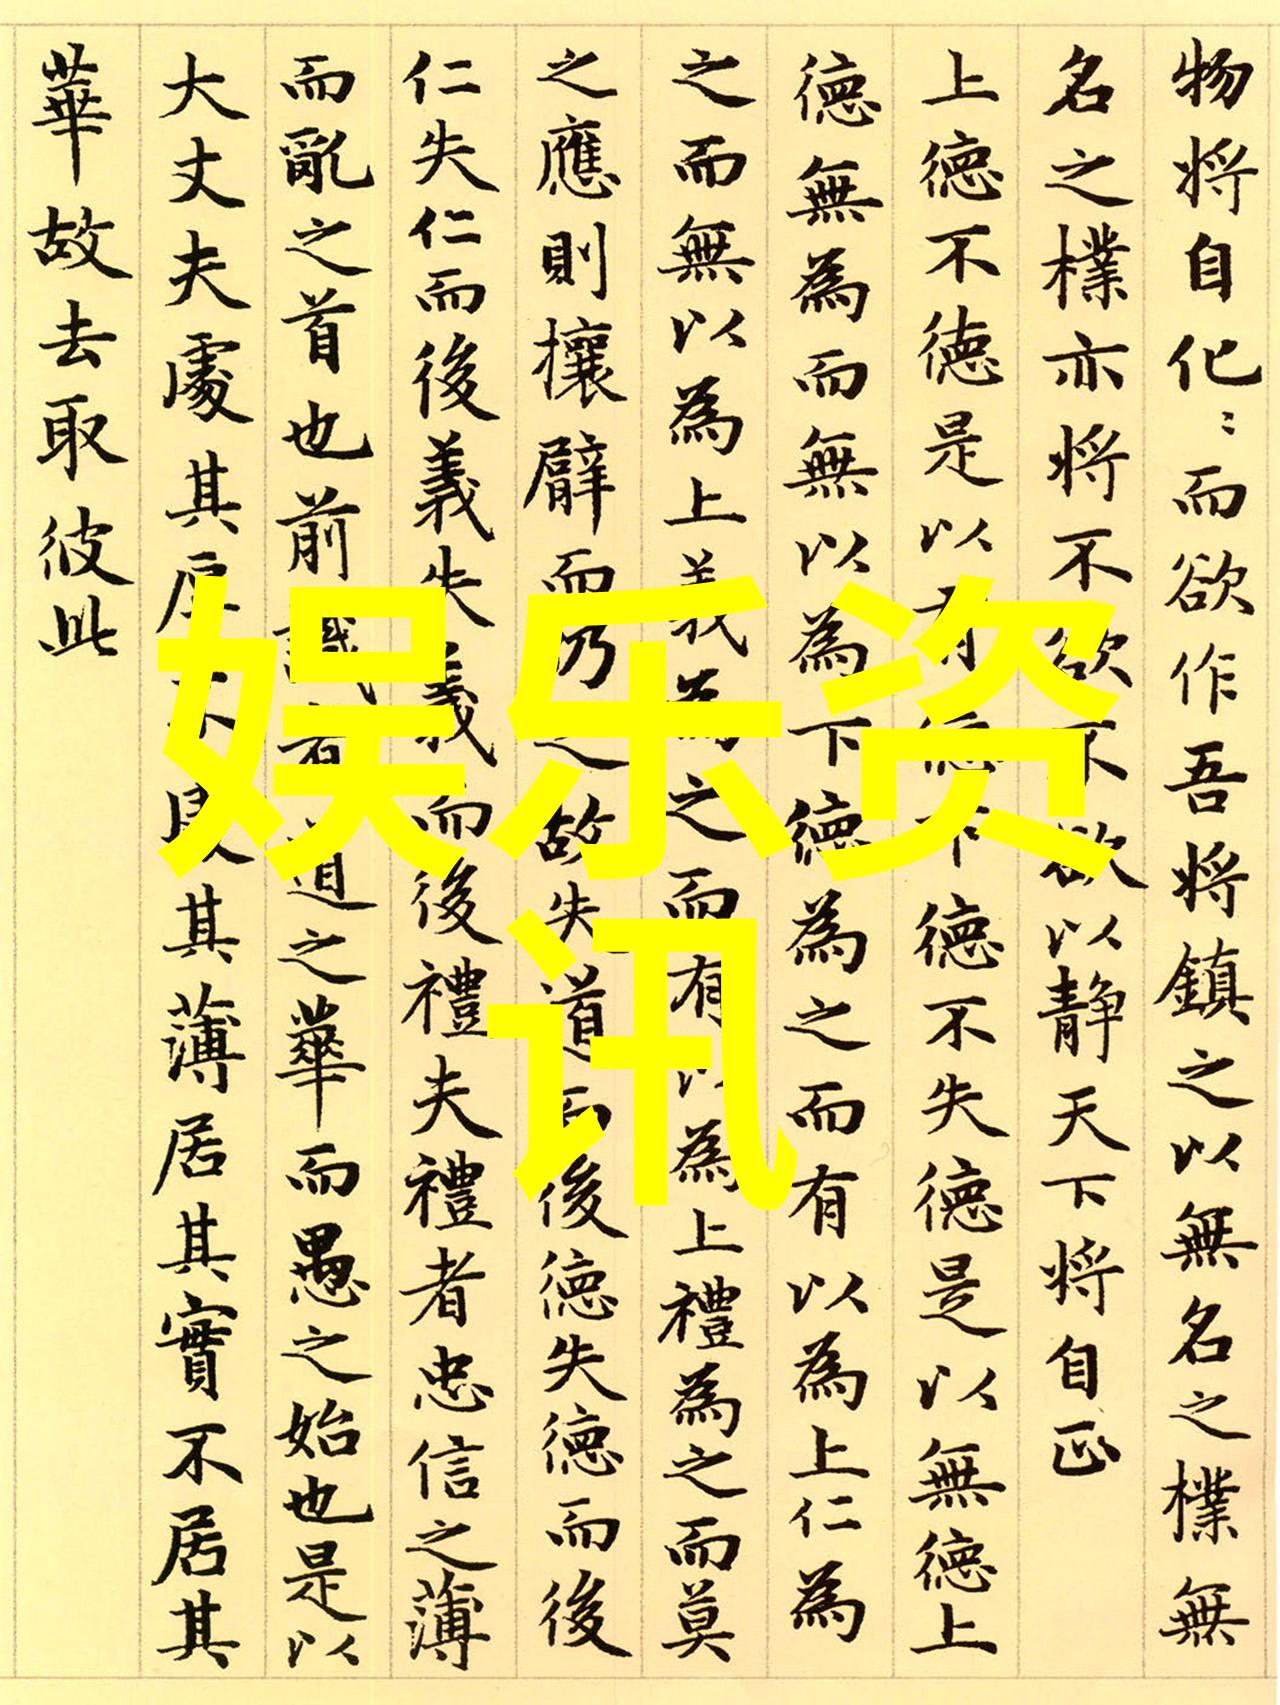 物将自化〻而欲作吾将鎮之以無名之樸無
名之樸亦将不欲不欲以静天下将自正
上德不德是以有德下德不失德是以無德上
德無為而無以為下德為之而有以為上仁為
之而無以為上義為之而有以為上禮為之而莫
之應則攘臂而扔之故失道而後德失德而後
仁失仁而後義失義而後禮夫禮者忠信之薄
而亂之首也前識者道之華而愚之始也是以
大丈夫處其厚不其薄居其實不居其
華故去取彼此
娱乐资
讯